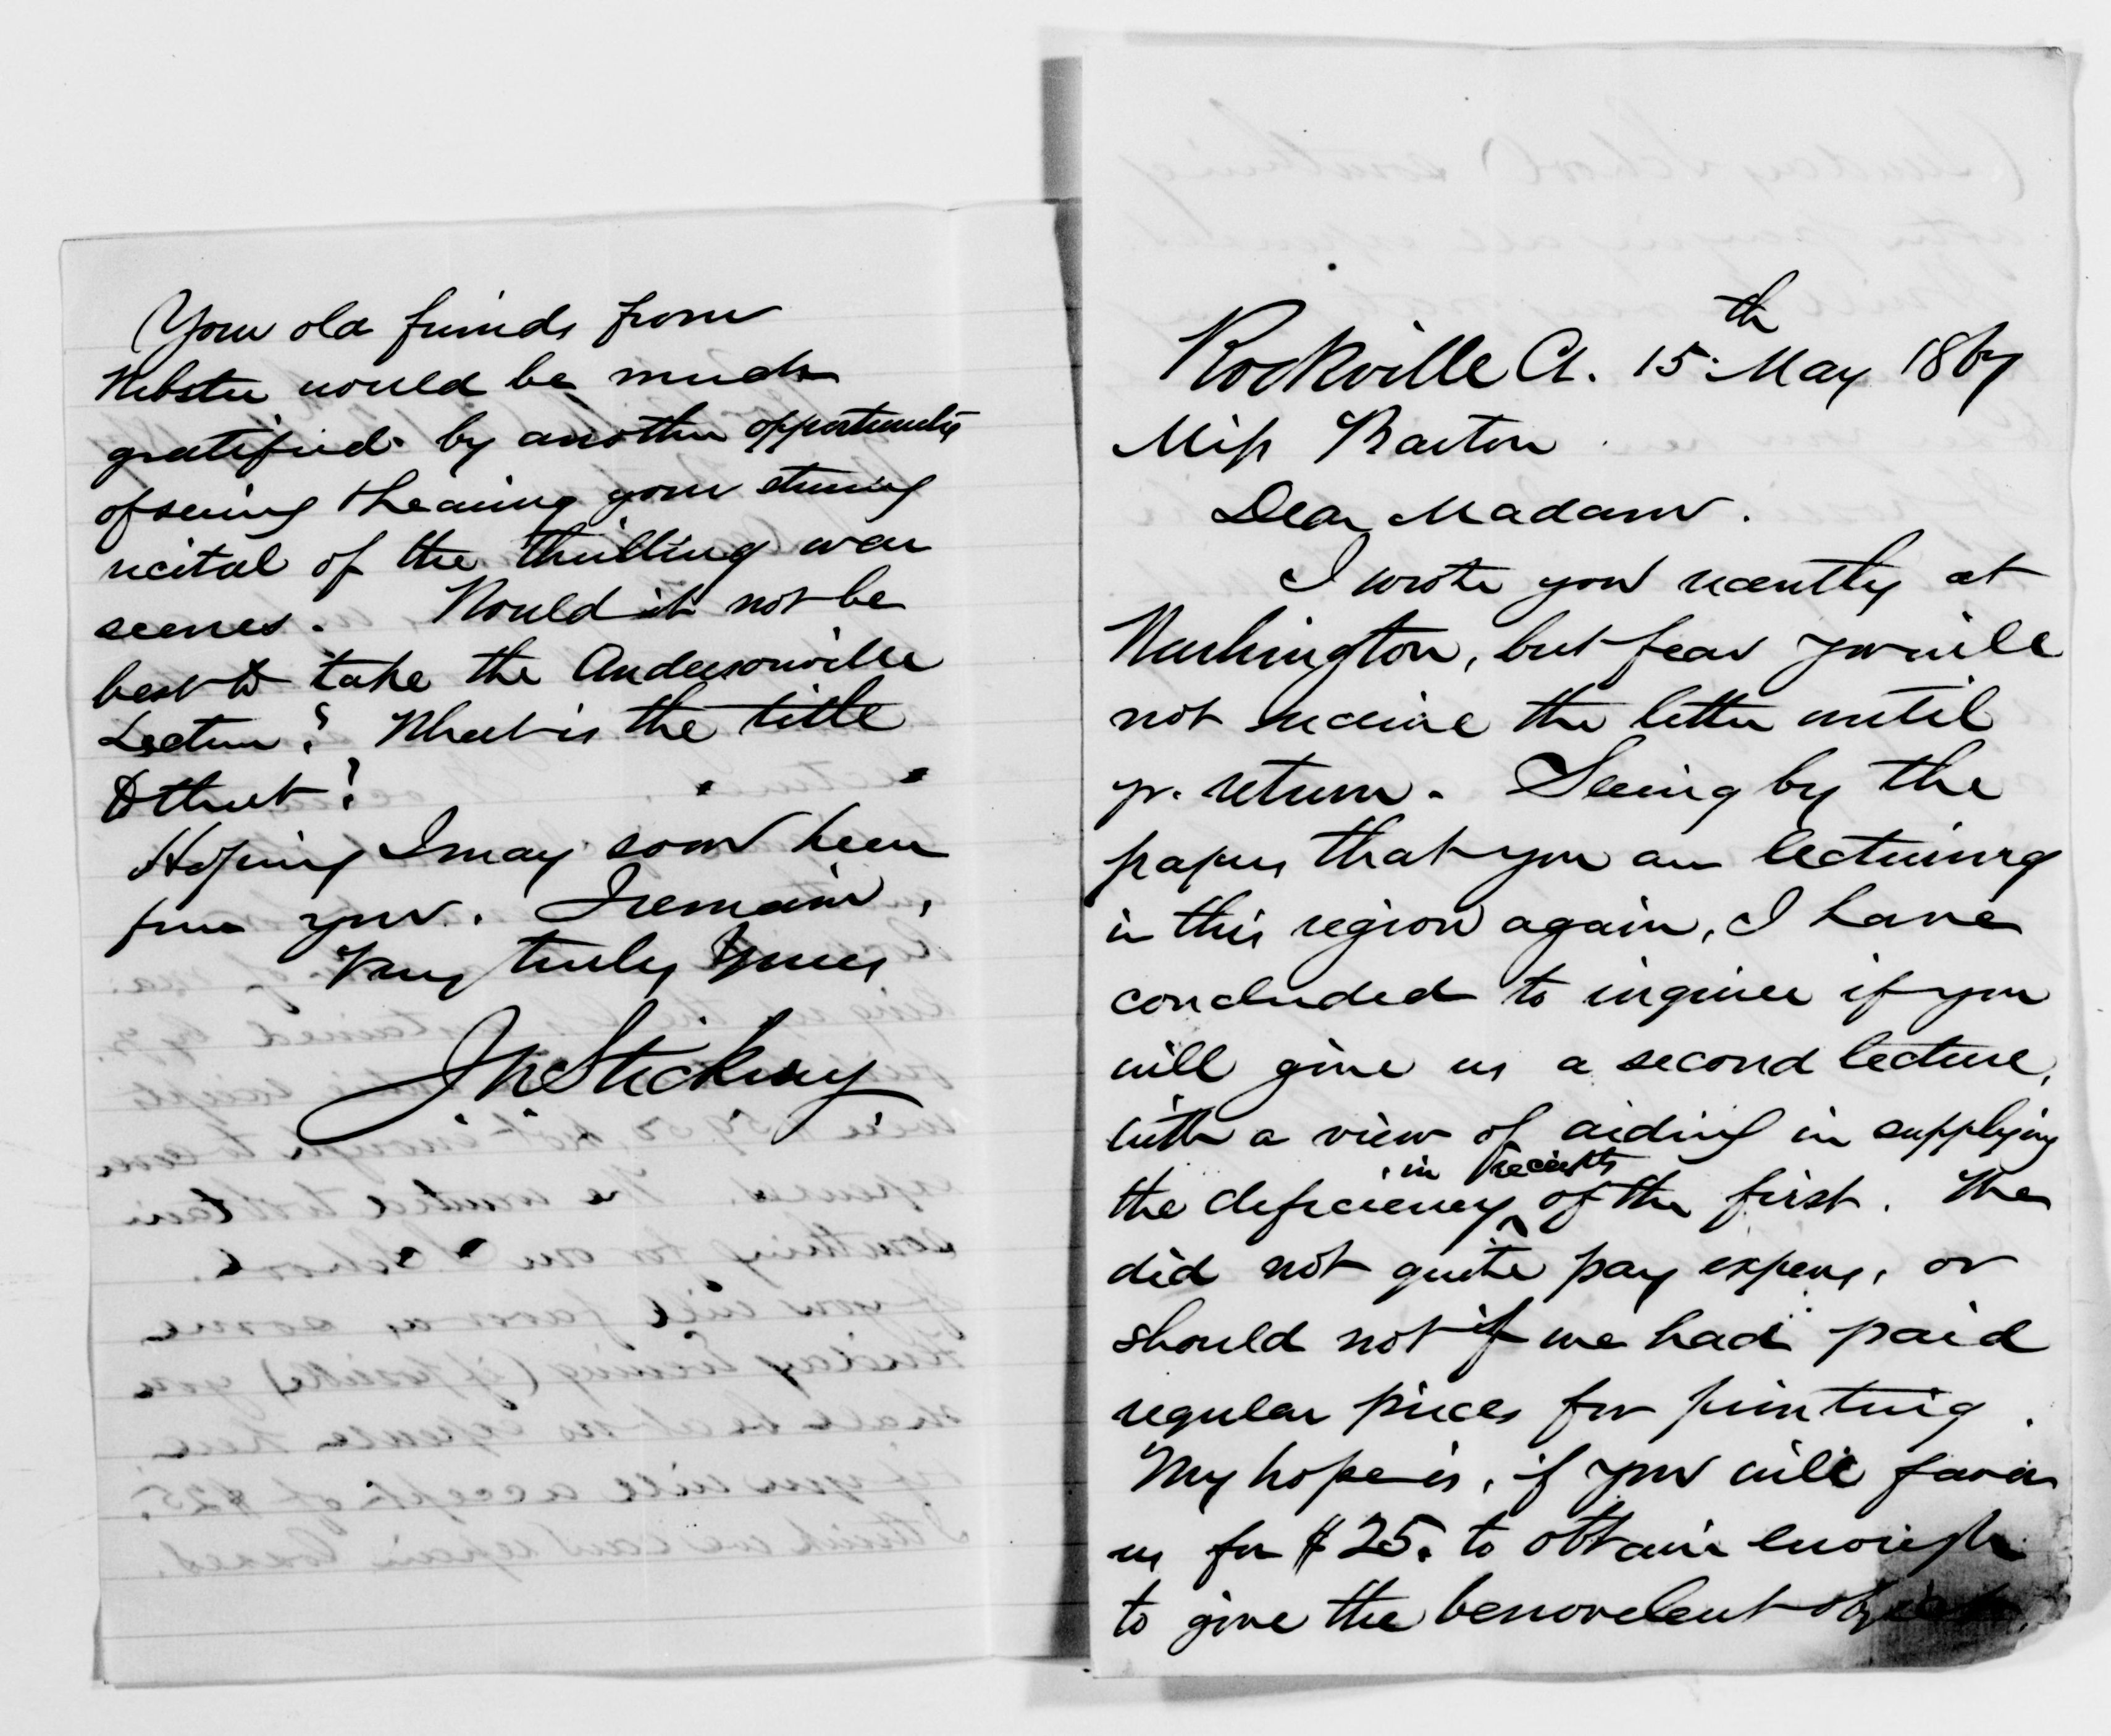 Your old friends from
Webster would be much
gratified by another opportunity
of seeing & hearing your stirring
recital of the thrilling war
scenes. Would it not be
best to take the Andersonville
Lecture? What is the title
to that?
Hoping I may soon hear
from you. I remain,
Very truly Yours
J N Stickney
Rockville Ct. 15th May 1867
Miss Barton
Dear Madam.
I wrote you recently at
Washington, but fear you will
not receive the letter until
yr. return. Seeing by the
papers that you are lecturing
in this region again, I have
concluded to inquire if you
will give us a second lecture,
with a view of aiding in supplying
the deficiency in receipts of the first. We
did not quite pay expens, or
should not if we had paid
regular prices for printing.
My hope is, if you will favor
us for $25. to obtain enough
to give the benevolent object